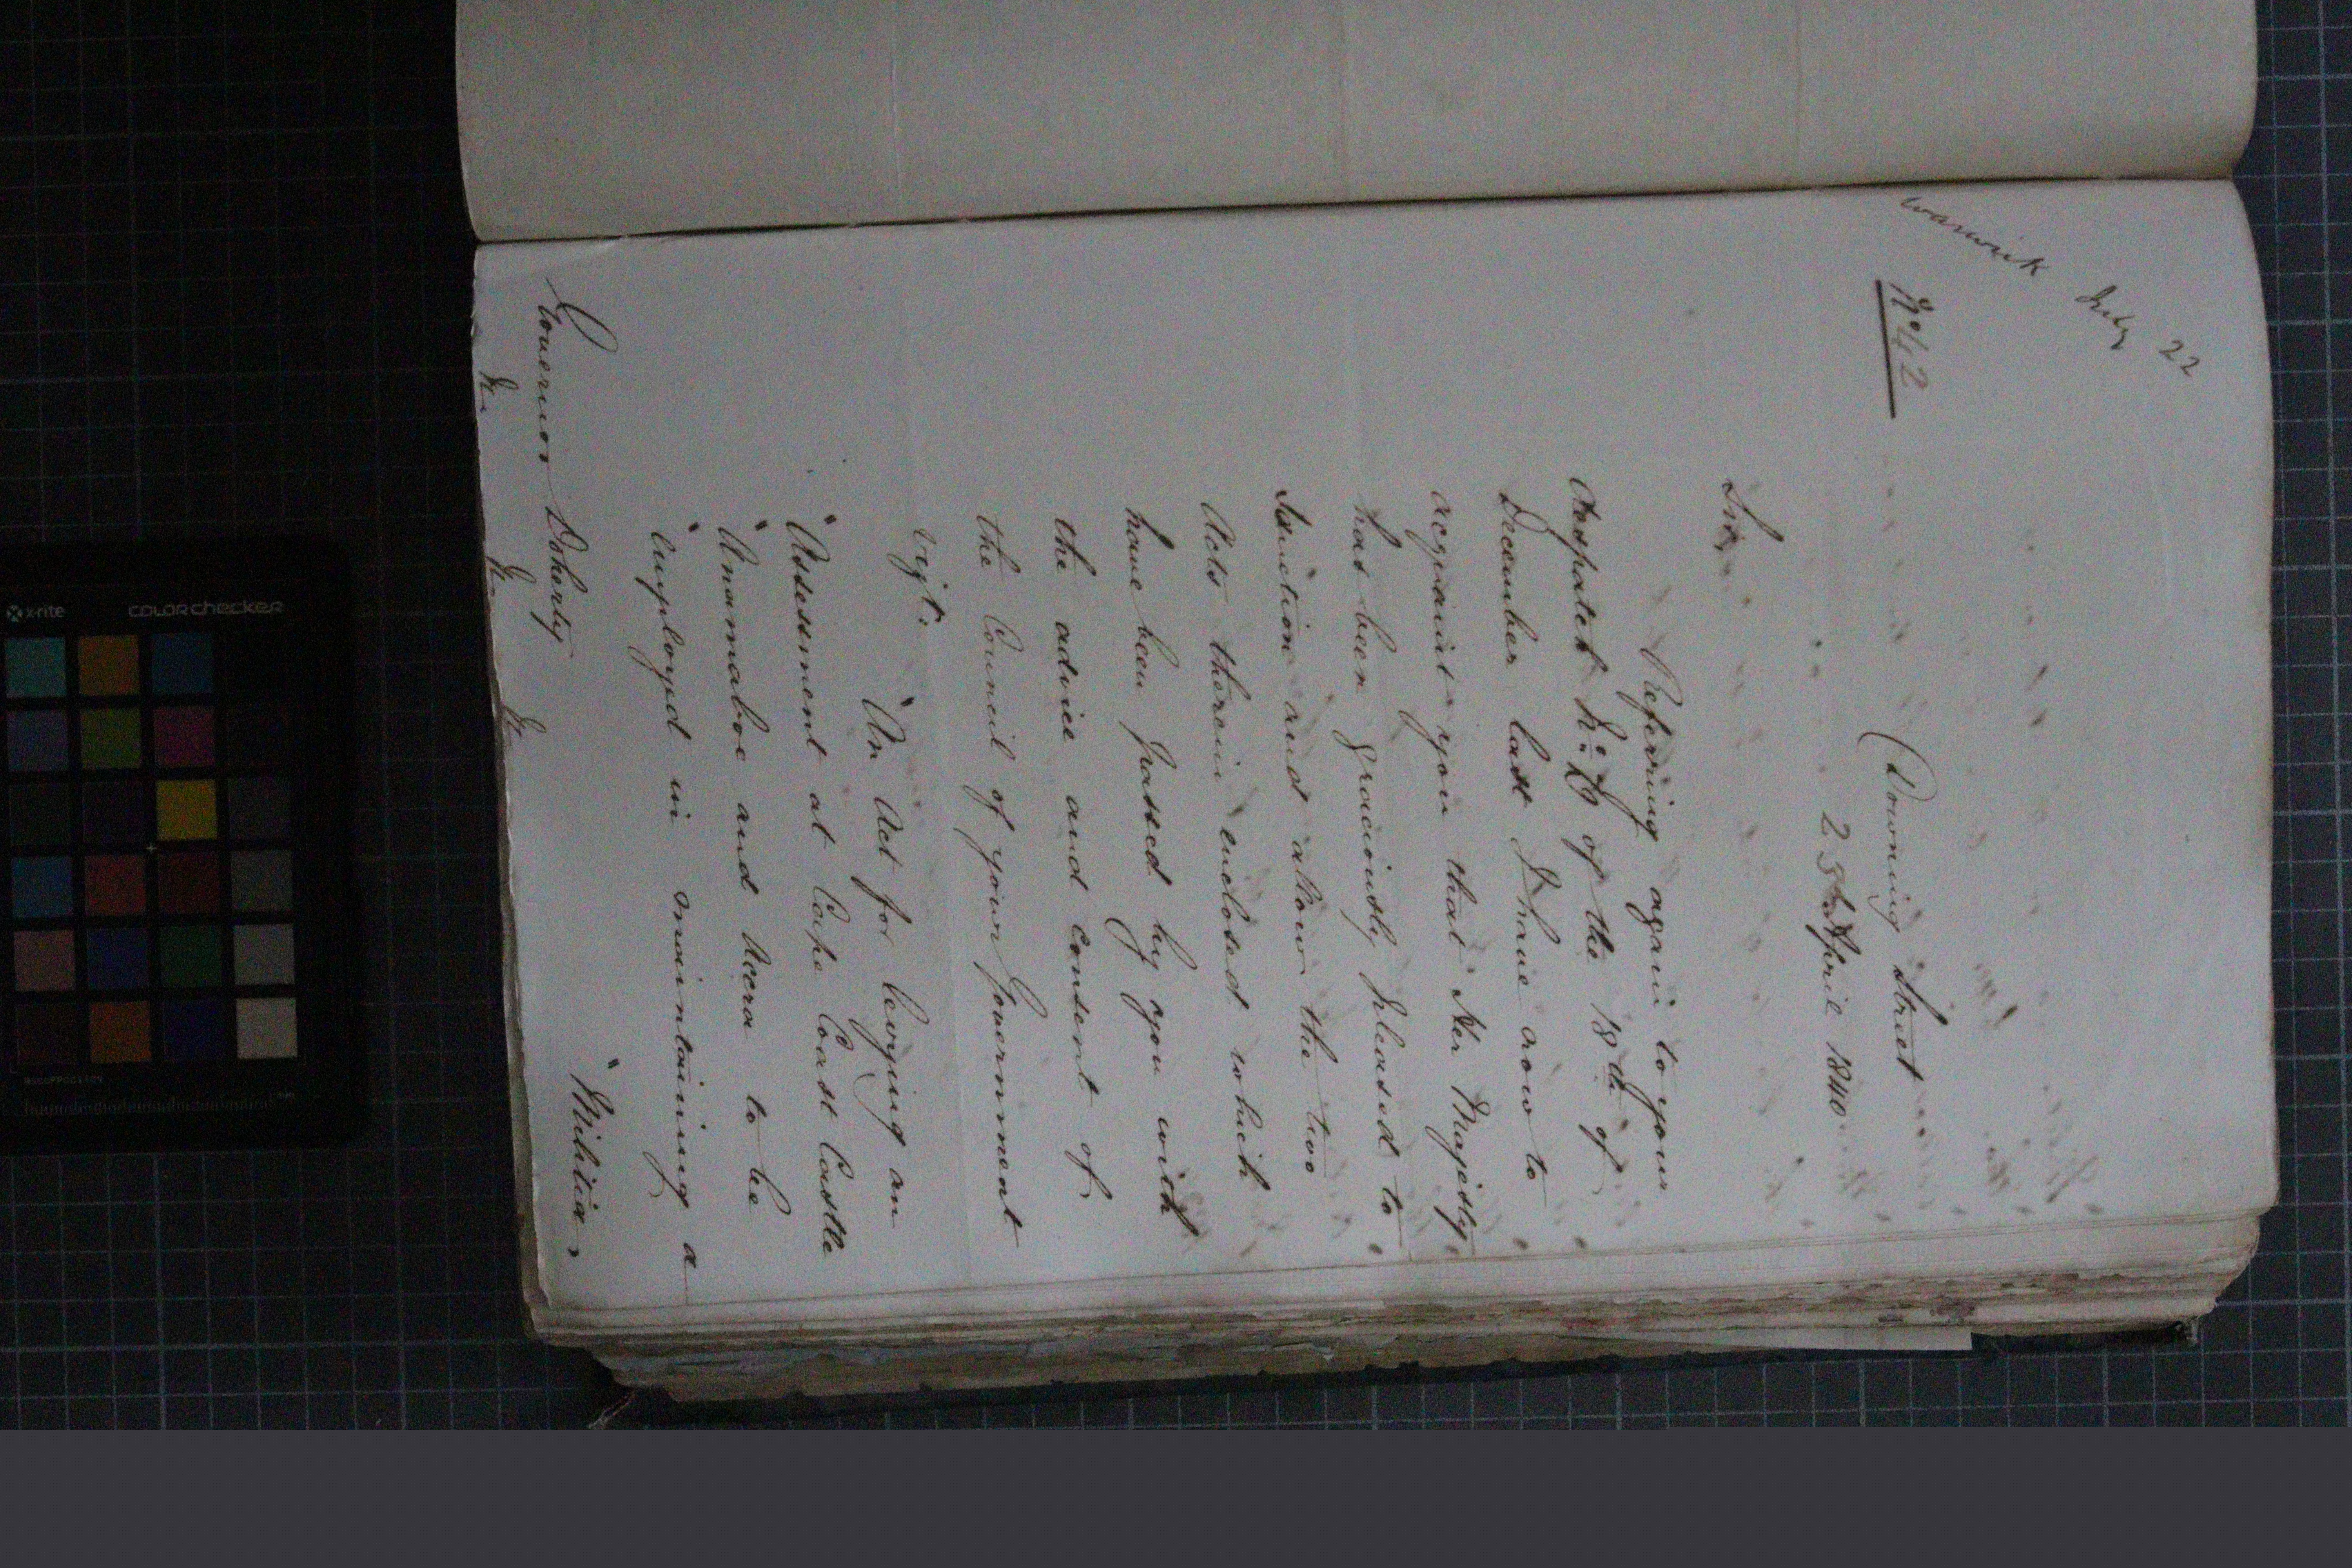 Warwick July 22
No. 42
Downing Street
25th April 1840
Sir,
Referring again to your
despatch No. of the 18th. of
December last I have now to
acquaint you that Her Majesty
has been graciously pleased to
sanction and allow the two
Acts therein enclosed which
have been passed by you with
the advice and consent of
the Council of your Government
vizt.
"An Act for levying an
"Assessment at Cape Coast Castle
"Anamaboe and Accra to be
"employed in maintaining a
"Militia,
Governor Doherty
&c. &c. &c.
x-rite colorchecker